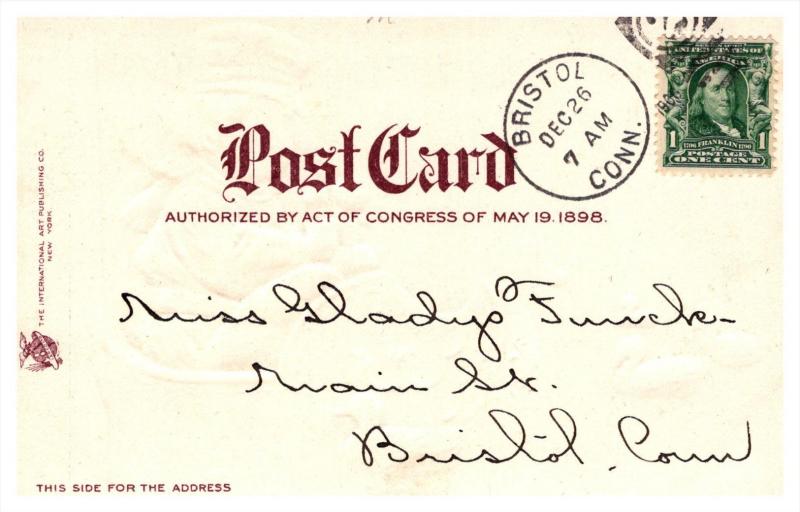 THE INTERNATIONAL ART PUBLISHING CO.
NEW YORK.
Post Card
AUTHORIZED BY ACT OF CONGRESS OF MAY 19. 1898.
BRISTOL
DEC 26
7 AM
CONN.
UNITED STATES OF
AMERICA
1 1706 FRANKLIN 1790 1
POSTAGE
ONE CENT
Miss Gladys Funck
Main St.
Bristol, Conn
THIS SIDE FOR THE ADDRESS